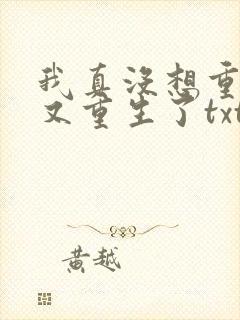 我真没想重
又重生了txt
黄越